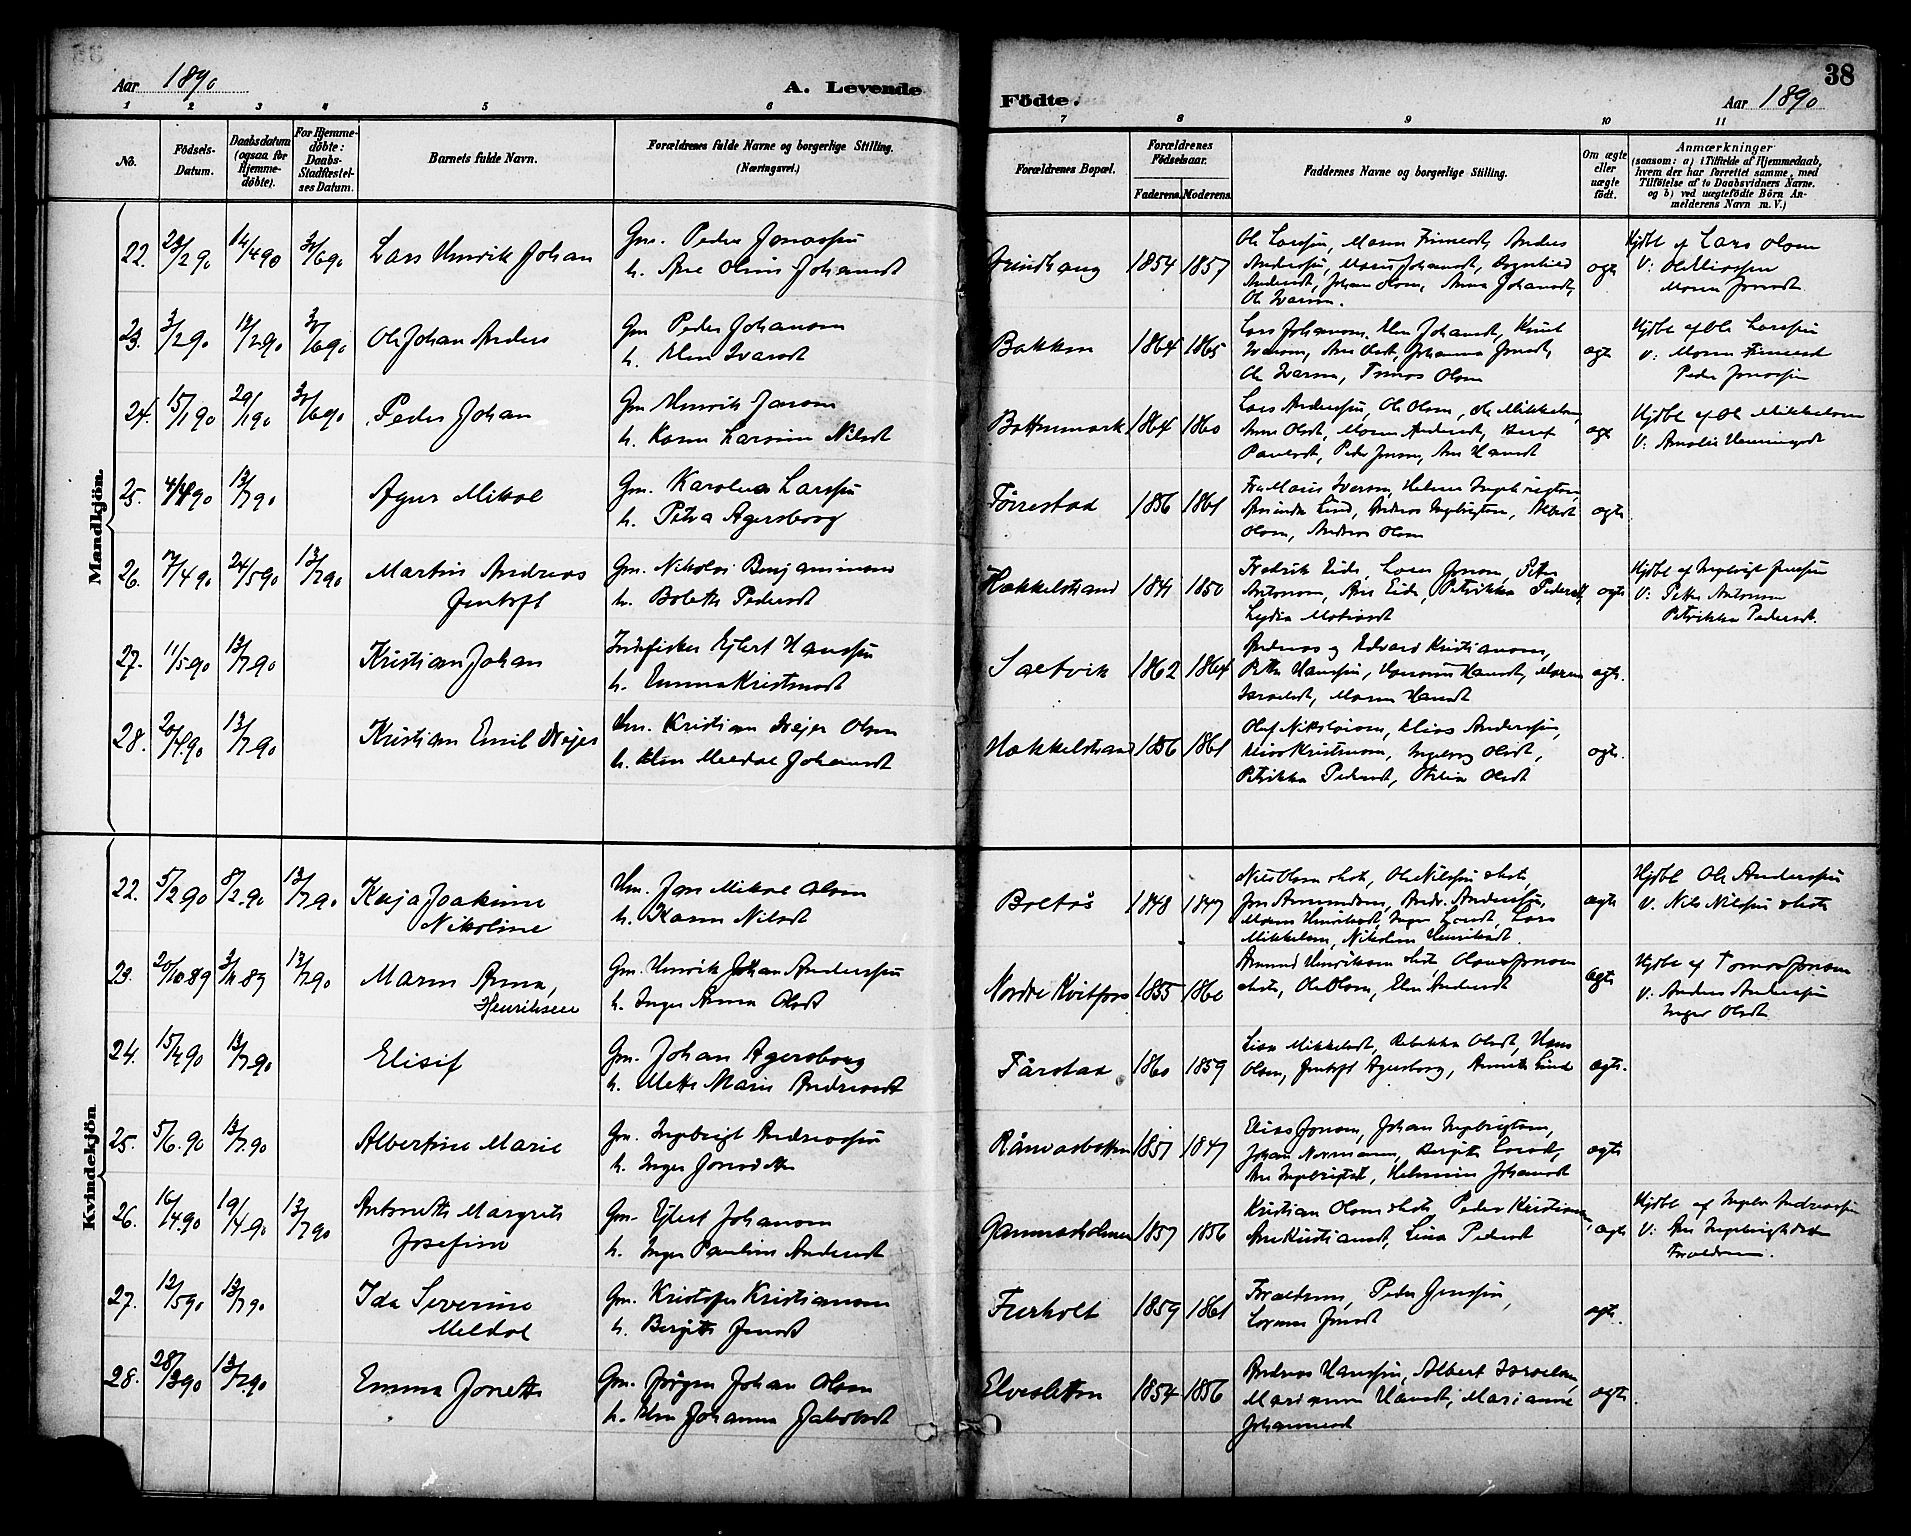 Aar 1890
A. Levende
Födte.
38
Aar 1890
1 2 3 4 5 6 7 8 9 10 11
No.
Födsels-
Datum.
Daabsdatum
(ogsaa for
Hjemme-
döbte).
For Hjemme-
döbte:
Daabs-
Stadfæstel-
ses Datum.
Barnets fulde Navn.
Forældrenes fulde Navne og borgerlige Stilling.
(Næringsvei.)
Forældrenes Bopæl.
Forældrenes
Födselsaar.
Faderens.
Moderens.
Faddernes Navne og borgerlige Stilling.
Om ægte
eller
uægte
födt.
Anmærkninger
(saasom: a) i Tilfælde af Hjemmedaab,
hvem der har forrettet samme, med
Tilföielse af to Daabsvidners Navne.
og b) ved uægtefödte Börn An-
melderens Navn m. V.)
Mandkjön.
22. 14/4 90 Lars Henrik Johan
Gm. Peder Jonassen
h. Ane Oline Johansdt
1854 1857
Ole Larssen, Maren, Anders
Anderssen, Johansdt,
Andersdt, Johan Olsen, Anna Johansdt,
Ole Ivarsen.
ægte
Hjdbt af Lars Olsen
V:
Maren Jonsdt
23. 3/2 90 12/2 90 Ole Johan Anders
Gm Peder Johansen
h. Elen Ivarsdt
Bakken 1864 1865
Lars Johansen, Elen Johansdt, Knut
Ivarsen, Ane Olsdt, Johanna Jonsdt,
Ole Ivarsen, Tomas Olsen
ægte
Hjdbt af Ole Larssen
V: Maren
Peder Jonassen
24. 15/1 90 29/1 90 Peder Johan
Gm Henrik Jonsen
h. Karen Larsine Nilsdt
Bottenmark 1864 1860
Lars Anderssen, Ole Olsen, Ole Mikkelsen,
Ane Olsdt, Maren Andersdt,
Paulsdt, Peder Jensen, Ane Hansdt
ægte
Hjdbt af Ole Mikkelsen
V: Amalie Henningsdt
25. 13/7 90 Agnar Mikal
Gm. Karolius Larssen
h. Petra Agersborg
Tørrestad 1856 1861
Ivarsen, Ingbrigtsen,
Lind, Andreas Ingbrigtsen, Albert
Olsen, Andreas Olsen
ægte
26. 7/4 90 24/5 90 13/7 90 Martin Andreas
Jentoft
Gm. Nikolai Benjaminsen
h. Bolette Pedersdt
Hækkelstrand 1841 1850
Fredrik Eide, Jonsen, Peter
Antonsen, Ane Eide, Petrikka Pedersdt,
Lydia
ægte
Hjdbt af Ingbrigt Jenssen
V: Petter Antonsen
Petrikka Pedersdt.
27. 11/5 90 13/7 90 Kristian Johan
Inderfisker Ejlert Hanssen
h. Emma Kristensdt
Saltvik 1862 1864
Andreas og Edvard Kristiansen,
Petter Hanssen, Hansdt, Maren
Israelsdt, Maren Hansdt
ægte.
28. 20/4 90 13/7 90 Kristian Emil Drejer
Hm. Kristian Drejer Olsen
h. Elen Meldal Johansdt
Hækkelstrand 1856 1861
Oluf Nikolaisen, Elias Anderssen,
Elias Kristensen, Ingeborg Olsdt,
Petrikka Pedersdt, Otelia Olsdt
ægte.
Kvindekjön.
22. 5/2 90 8/2 90 13/7 90 Kaja Joakime
Nikoline
Hm. Jon Mikal Olsen
h. Karen Nilsdt
Boltås 1848 1847
Nils Olsen, Ole Nilssen,
Jon Amundsen, Andr. Anderssen,
Maren Henriksdt, Inger, Lars
Mikkelsen, Nikoline Henriksdt.
ægte
Hjdbt Ole Anderssen
V. Nils Nilssen
23. 20/10 89 13/7 90 Maren Anna,
Henriksen
Gm. Henrik Johan Anderssen
h. Inger Anna Olsdt
Nordre Kvitfors 1855 1860
Amund Henriksen, Jonsen
Ole Olsen, Elen Andersdt
ægte
Hjdbt af Tomas Jonsen
V: Anders Anderssen
Inger Olsdt
24. 15/4 90 13/7 90 Elisif
Gm. Johan Agersborg
h. Mette Marie Andreasdt
Tårstad 1860 1859
Lisa Mikkelsdt, Rebekka Olsdt, Hans
Olsen, Jentoft Agersborg, Lind
ægte.
25. 5/6 90 13/7 90 Albertine Marie
Gm. Ingbrigt Andreassen
h. Inger Jonsdtter
Rånvasbotten 1851 1847
Elias Jonsen, Johan Ingbrigtsen,
Johan Normann, Birgitte,
Ane Ingbrigtsdt, Helmine Johansdt
ægte
26. 16/4 90 19/4 90 13/7 90 Antonette Margrete
Josefine
Gm. Ejlert Johansen
h. Inger Pauline Andersdt
Gammasholmen 1857 1856
Kristian Olsen, Peder Kristiansen,
Ane Kristiansdt, Lina Pedersdt
ægte
Hjdbt af Andreassen
V: Ane Ingbrigtsdt
Forældrene.
27. 12/5 90 13/7 90 Ida Severine
Meldal
Gm. Kristofer Kristiansen
h. Birgitte Jensdt
Fuerholt 1859 1861
Forældrene, Peder Jenssen,
Jensdt
ægte.
28. 28/3 90 13/7 90 Emma Jonette
Gm. Jørgen Johan Olsen
h. Elen Johanna Jakobsdt
Elvesletten 1854 1856
Andreas Hanssen, Albert Israelsen,
Marianne Hansdt, Marianne
Johannesdt
ægte.